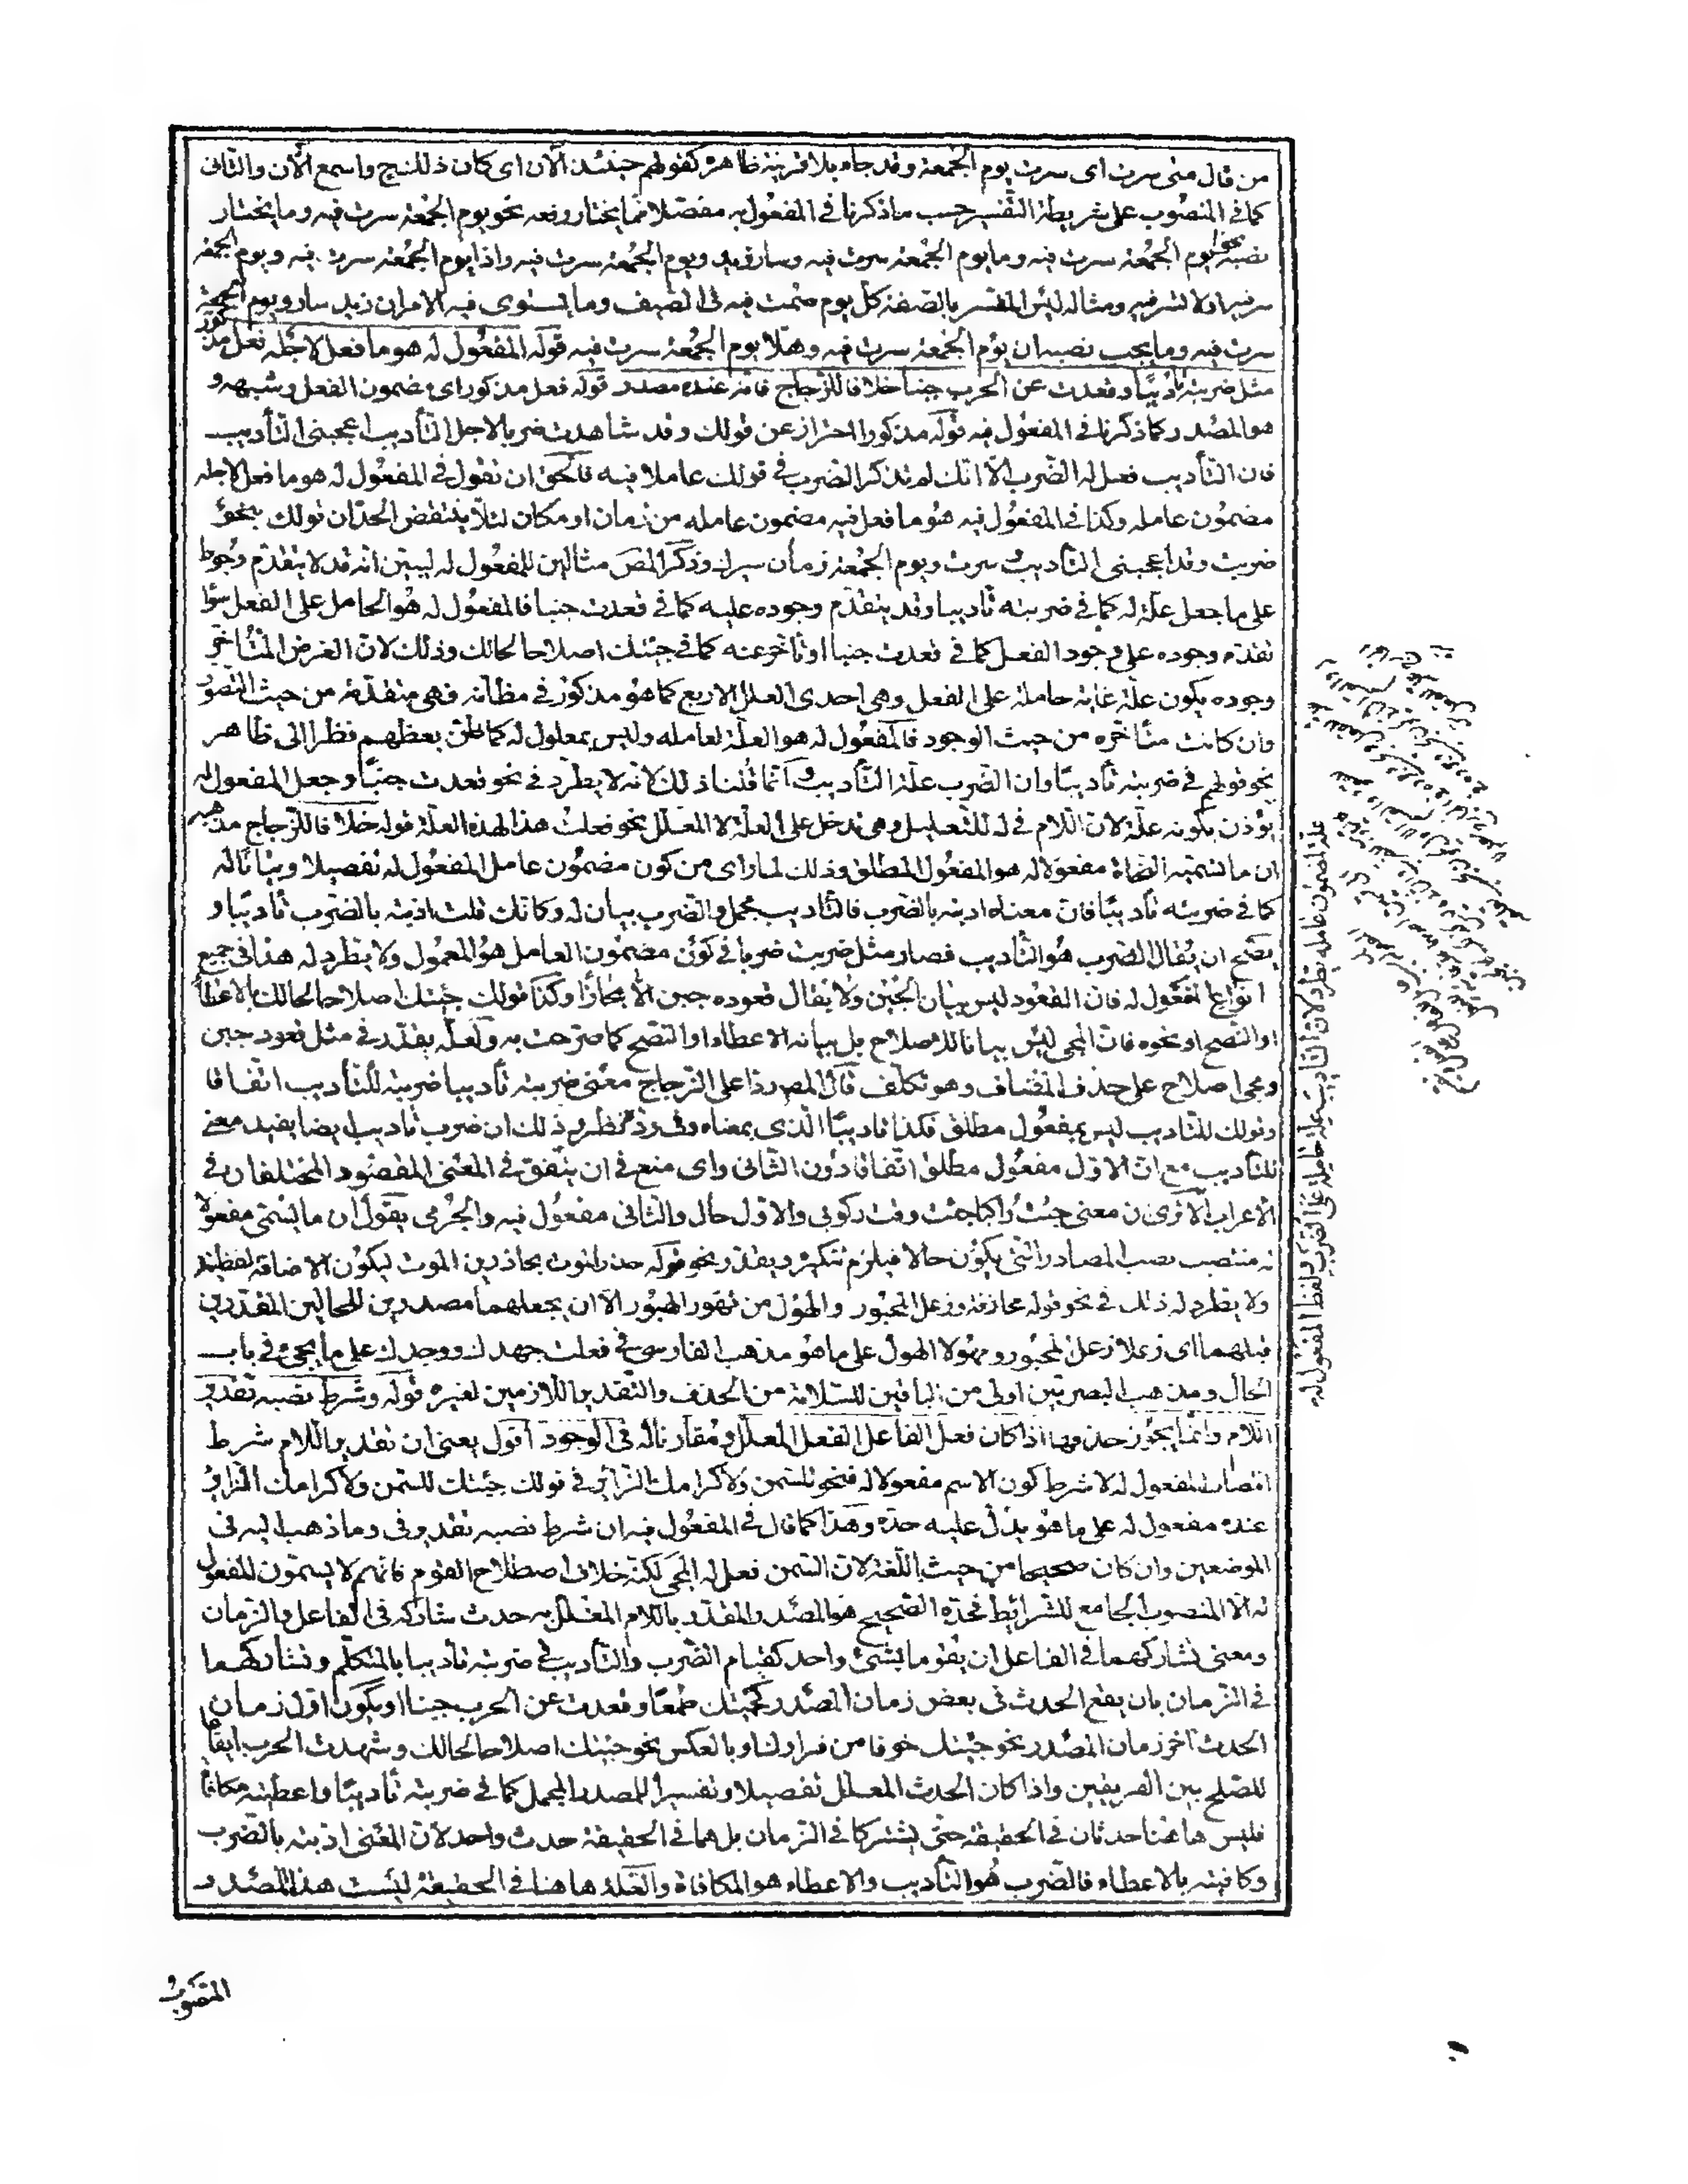 من قال متى سرت اى سرت يوم الجمعة وقد جاء بلا قرينة ظاهرة كقولهم حينئذ الآن اى كان ذلك حينئذ واسمع الآن والثانى
كما فى المنصوب على شريطة التفسير حسب ما ذكرنا فى المفعول به مفصلا فما يختار رفعه نحو يوم الجمعة سرت فيه وما يختار
نصبه نحو ايوم الجمعة سرت فيه وما يوم الجمعة سرت فيه وسار زيد ويوم الجمعة سرت فيه واذا يوم الجمعة سرت فيه ويوم الجمعة
سر فيه او لا تسر فيه ومثاله ليس المفسر بالصفة كل يوم صمت فيه فى الصيف وما يستوى فيه الامران زيد سار ويوم الجمعة
سرت فيه وما يجب نصبه ان يوم الجمعة سرت فيه وهلا يوم الجمعة سرت فيه قوله المفعول له هو ما فعل لاجله فعل مذكور
مثل ضربته تأديبا وقعدت عن الحرب جبنا خلافا للزجاج فانه عنده مصدر قوله فعل مذكور اى مضمون الفعل وشبهه و
هو المصدر كما ذكرنا فى المفعول فيه قوله مذكور احتراز عن قولك وقد شاهدت ضربا لاجل التأديب اعجبنى التأديب
فان التأديب فعل له الضرب الا انك لم تذكر الضرب فى قولك عاملا فيه فالحق ان نقول فى المفعول له هو ما فعل لاجله
مضمون عامله وكذا فى المفعول فيه هو ما فعل فيه مضمون عامله من زمان او مكان لئلا ينتقض الحدان قولك بنحو
ضربت وقد اعجبنى التأديب وسرت ويوم الجمعة زمان سيرك وذكر المص مثالين للمفعول له ليبين انه قد لا يتقدم وجوده
على ما جعل علة له كما فى ضربته تأديبا وقد يتقدم وجوده عليه كما فى قعدت جبنا فالمفعول له هو الحامل على الفعل سواء
تقدم وجوده على وجود الفعل كما فى قعدت جبنا او تأخر عنه كما فى جئتك اصلاحا لحالك وذلك لان الغرض المتأخر
وجوده يكون علة غائية حاملة على الفعل وهى احدى العلل الاربع كما هو مذكور فى مظانه فهى متقدمة من حيث التصور
وان كانت متأخرة من حيث الوجود فالمفعول له هو العلة لعامله وليس بمعلول له كما ظن بعظهم نظرا الى ظاهر
نحو قولهم فى ضربته تأديبا وان الضرب علة التأديب وانما قلنا ذلك لانه لا يطرد فى نحو قعدت جبنا وجعل المفعول له
يؤذن بكونه علة لان اللام فى له للتعليل وهى تدخل على العلة لا المعلل نحو فعلت هذا لهذه العلة قوله خلافا للزجاج مذهبه
ان ما تسميه النحاة مفعولا له هو المفعول المطلق وذلك لما راى من كون مضمون عامل المفعول له تفصيلا وبيانا له
كما فى ضربته تأديبا فان معناه ادبته بالضرب فالتأديب مجمل والضرب بيان له وكانك قلت ادبته بالضرب تأديبا و
يصح ان يقال الضرب هو التأديب فصار مثل ضربت ضربا فى كون مضمون العامل هو المعمول ولا يطرد له هذا فى جميع
انواع المفعول له فان القعود ليس ببيان الجبن ولا يقال قعوده جبن الا مجازا وكذا قولك جئتك اصلاحا لحالك بالاعطاء
او النصح او نحوه فان المجى ليس بيانا للاصلاح بل بيانه الاعطاء او النصح كما صرحت به ولعله يقدر فى مثل قعود جبن
ومجى اصلاح على حذف المضاف وهو تكلف قال المص ردا على الزجاج معنى ضربته تأديبا ضربته للتأديب اتفاقا
وقولك للتأديب ليس بمفعول مطلق فكذا تأديبا الذى بمعناه وفيه نظر وذلك ان ضرب تأديب ايضا يفيد معنى
للتأديب مع ان الاول مفعول مطلق اتفاقا دون الثانى واى منع فى ان يتفق فى المعنى المقصود المختلفان فى
الاعراب الا ترى ان معنى جئت راكبا جئت وقت ركوبى والاول حال والثانى مفعول فيه والجرمى يقول ان ما يسمى مفعولا
له منتصب نصب المصادر التى يكون حالا فيلزم تنكيره ويقدر نحو قوله حذر الموت بحاذرين الموت ليكون الاضافة لفظية
ولا يطرد له ذلك فى نحو قوله مخافة وزعل المحبور والهول من تهور الهبور الا ان يجعلهما مصدرين للحالين المقدرين
قبلهما اى زعلا زعل المحبور ومهولا الهول على ما هو مذهب الفارسى فى فعلت جهدك ووحدك على ما يجئ فى باب
الحال ومذهب البصريين اولى من الباقين للسلامة من الحذف والتقدير اللازمين لغيره قوله وشرط نصبه تقدير
اللام وانما يجوز حذفها اذا كان فعل الفاعل الفعل المعلل ومقارنا له فى الوجود اقول يعنى ان تقدير اللام شرط
انتصاب المفعول له لا شرط كون الاسم مفعولا له فنحو للسمن ولاكرامك الزائر فى قولك جئتك للسمن ولاكرامك الزائر
عنده مفعول له على ما هو يدل عليه حده وهذا كما قال فى المفعول فيه ان شرط نصبه تقدير فى وما ذهب اليه فى
الموضعين وان كان صحيحا من حيث اللغة لان السمن فعل له المجى لكنه خلاف اصطلاح القوم فانهم لا يسمون المفعول
له الا المنصوب الجامع للشرايط فحده الصحيح هو المصدر المقدر باللام المعلل به حدث شاركه فى الفاعل والزمان
ومعنى تشاركهما فى الفاعل ان يقوما بشئ واحد كقيام الضرب والتأديب فى ضربته تأديبا بالمتكلم وتشاركهما
فى الزمان بان يقع الحدث فى بعض زمان المصدر كجئتك طمعا وقعدت عن الحرب جبنا او يكون اول زمان
الحدث آخر زمان المصدر نحو جئتك خوفا من فرارك او بالعكس نحو جئتك اصلاحا لحالك وشهدت الحرب ايقاعا
للصلح بين الفريقين واذا كان الحدث المعلل تفصيلا وتفسيرا للمصدر المجمل كما فى ضربته تأديبا واعطيته مكافاة
فليس هاهنا حدثان فى الحقيقة حتى يشتركا فى الزمان بل هما فى الحقيقة حدث واحد لان المعنى ادبته بالضرب
وكافيته بالاعطاء فالضرب هو التأديب والاعطاء هو المكافاة والعلة هاهنا فى الحقيقة ليست هذا المصدر
المنصوب
علة لمضمون عامله نظر لان التأديب علة حاملة على الضرب ولفظ المفعول له